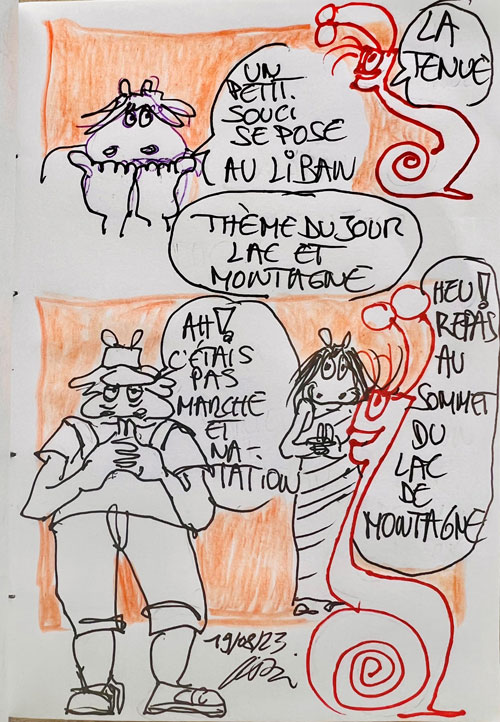 UN
PETIT
SOUCI
SE POSE
AU LIBAIN
LA
TENUE
THÈME DU JOUR
LAC ET
MONTAGNE
AH!
C'ÉTAIS
PAS
MARCHE
ET
NA-
TATION
HEU!
REPAS
AU
SOMMET
DU
LAC
DE
MONTAGNE
19/08/23